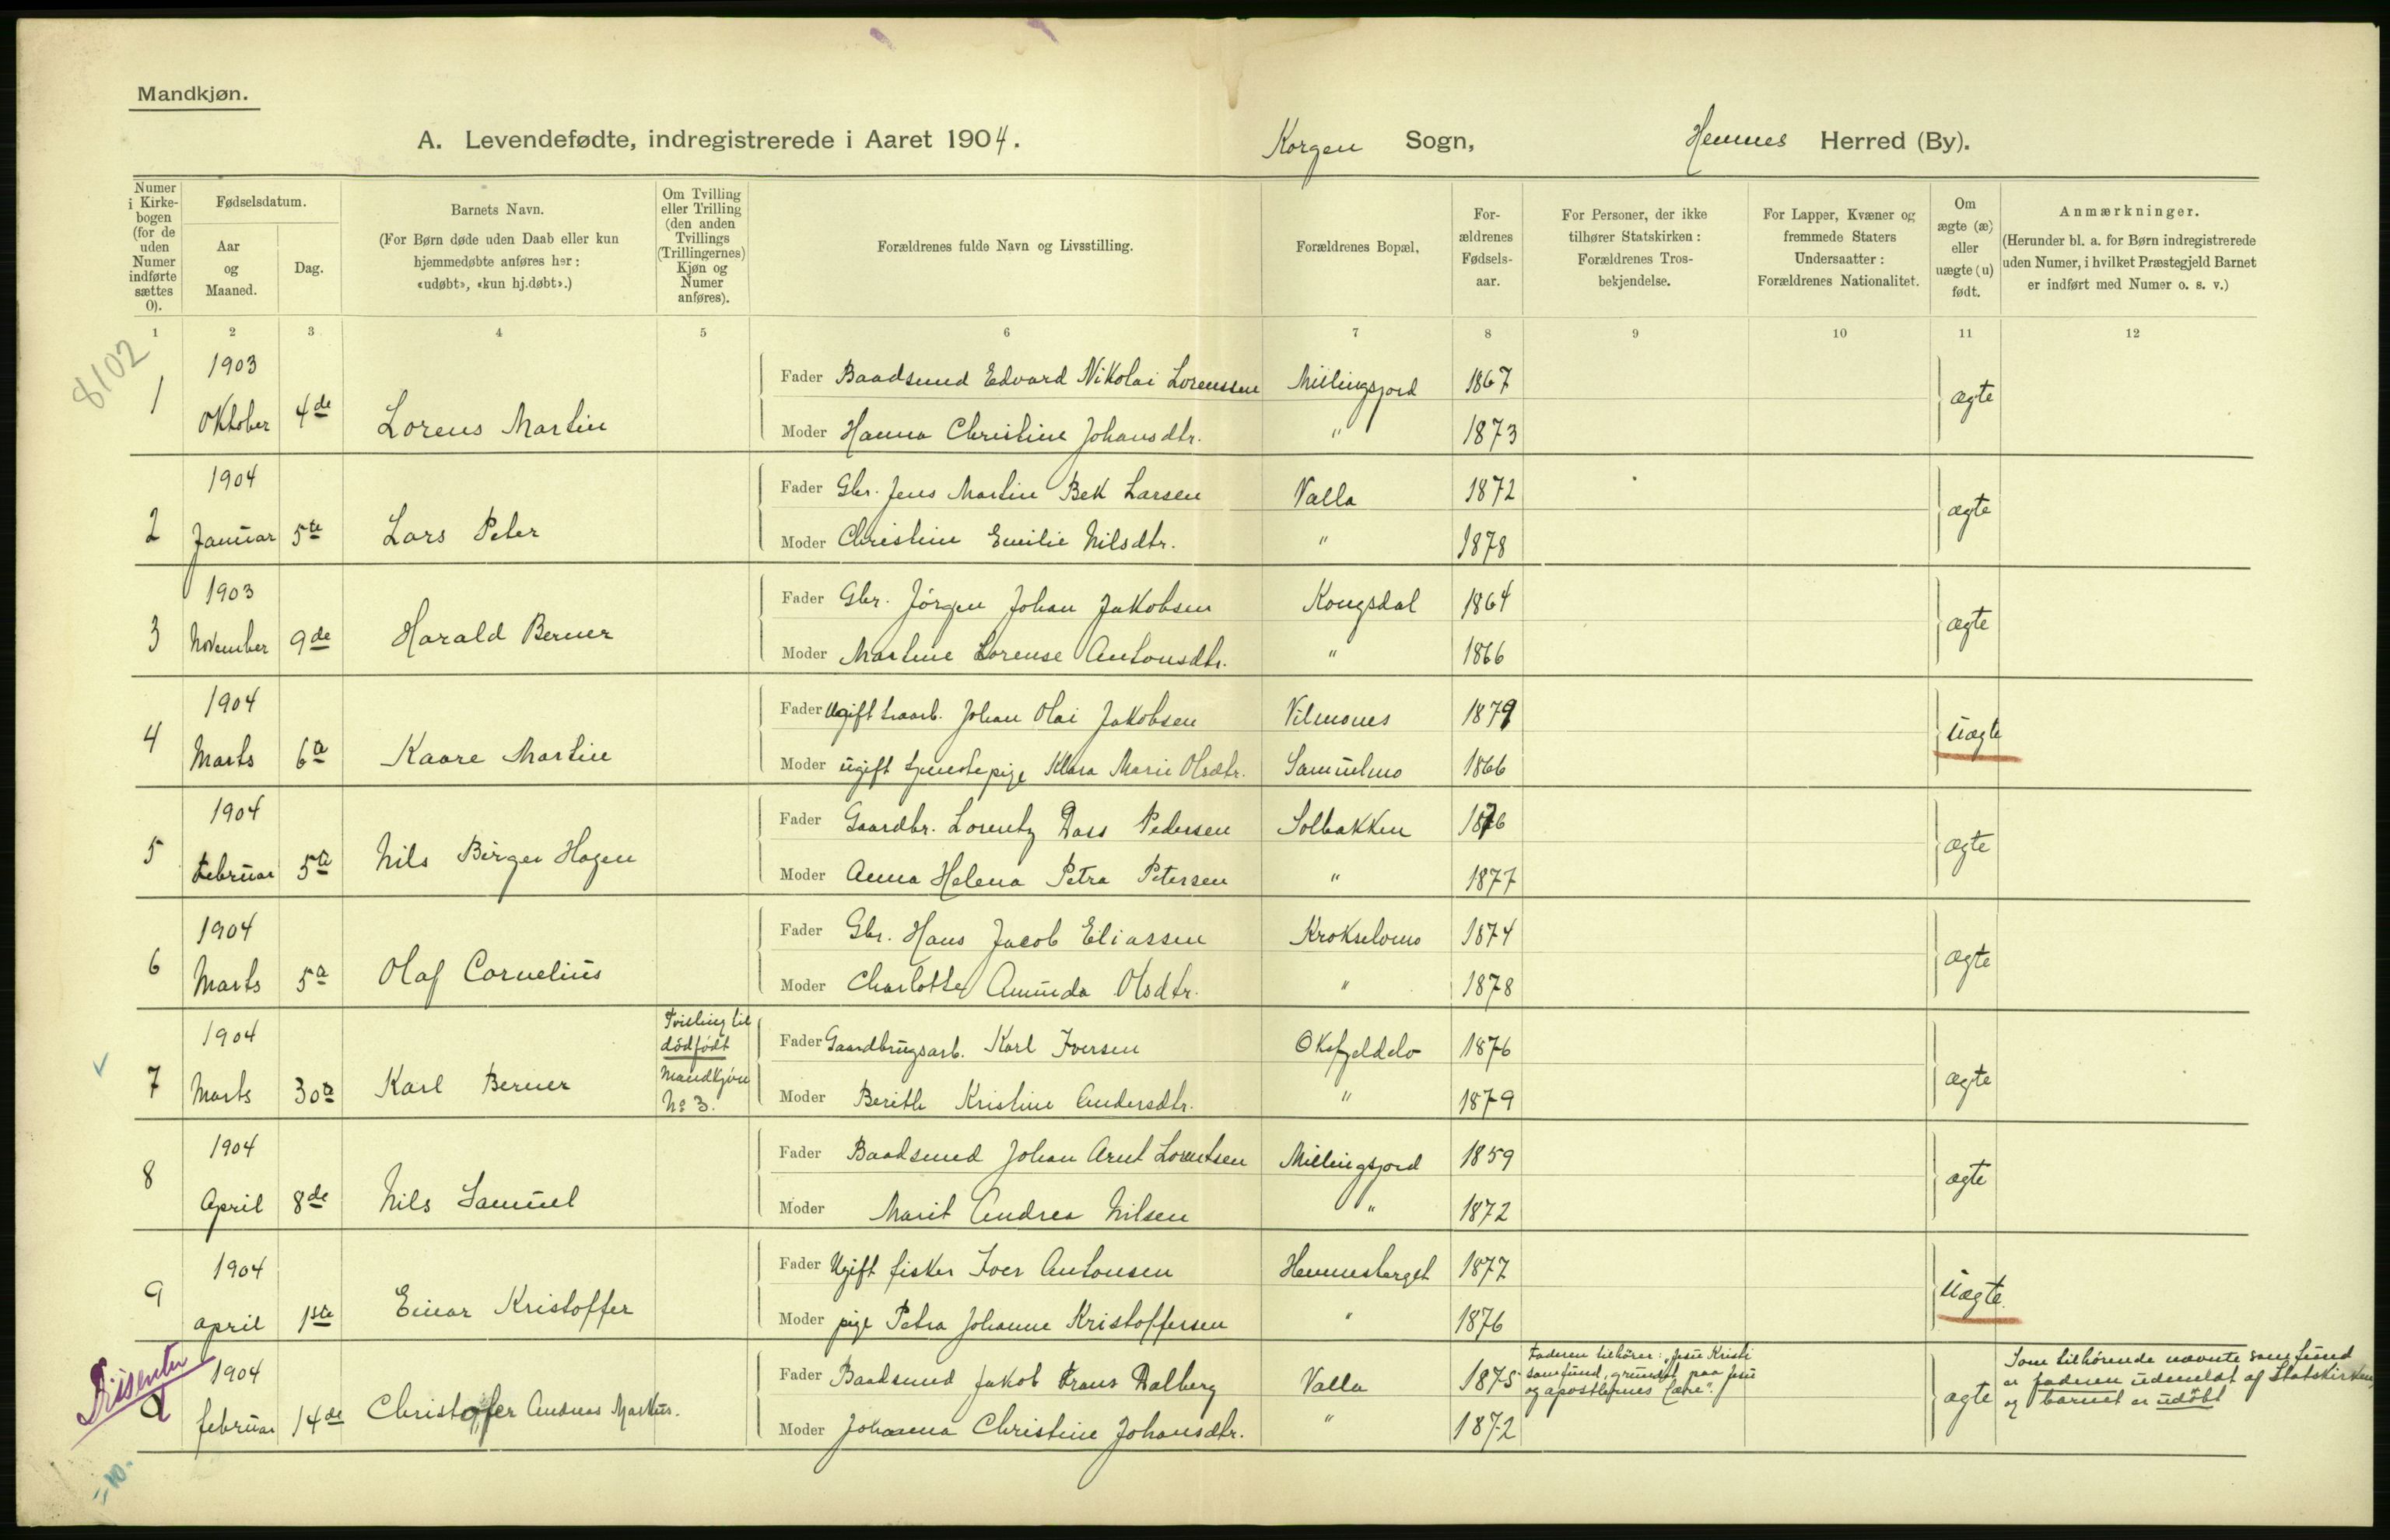 Mandkjøn.
A. Levendefødte, indregistrerede i Aaret 1904. Korgen Sogn, Hemnes Herred (By).
Numer i Kirke-bogen (for de uden Numer indførte sættes 0).
Fødselsdatum.
Aar og Maaned.
Dag.
Barnets Navn.
(For Børn døde uden Daab eller kun hjemmedøbte anføres her: «udøbt», «kun hj.døbt».)
Om Tvilling eller Trilling (den anden Tvillings (Trillingernes) Kjøn og Numer anføres).
Forældrenes fulde Navn og Livsstilling.
Forældrenes Bopæl.
For-ældrenes Fødsels-aar.
For Personer, der ikke tilhører Statskirken: Forældrenes Tros-bekjendelse.
For Lapper, Kvæner og fremmede Staters Undersaatter: Forældrenes Nationalitet.
Om ægte (æ) eller uægte (u) født.
Anmærkninger.
(Herunder bl. a. for Børn indregistrerede uden Numer, i hvilket Præstegjeld Barnet er indført med Numer o. s. v.)
1 2 3 4 5 6 7 8 9 10 11 12
8102
1903 Fader Baadsmand Edvard Nikolai Lorenssen 1867
1 Oktober 4de Lorens Martin ægte
Moder Hanna Christine Johansdtr. " 1873
1904 Fader Gbr. Jens Martin Bek Larsen Valla 1872
2 Januar 5te Lars Peter ægte
Moder Christine Emilie Nilsdtr. " 1878
1903 Fader Gbr. Jørgen Johan Jakobsen Kongsdal 1864
3 November 9de Harald Berner ægte
Moder Martine Lorense Antonsdtr. " 1866
1904 Fader Ugift Johan Olai Jakobsen 1879
4 Marts 6te Kaare Martin uægte
Moder ugift tjenestepige Klara Marie Olsdtr. Samuelmo 1866
1904 Fader Gaardbr. Lorentz Dass Pedersen Solbakken 1876
5 Februar 5te Nils Birger Hagen ægte
Moder Anna Helena Petra Petersen " 1877
1904 Fader Gbr. Hans Jacob Eliassen 1874
6 Marts 5te Olaf Cornelius ægte
Moder Charlotte Aminda Olsdtr. " 1878
1904 Tvilling til dødfødt Mandkjøn No 3. Fader Gaardbrugsarb. Karl Iversen 1876
7 Marts 30te Karl Berner ægte
Moder Berithe Kristine Andersdtr. " 1879
1904 Fader Baadsmd Johan Arnt Lorentsen 1859
8 April 8de Nils Samuel ægte
Moder Marit Andrea Nilsen " 1872
1904 Fader Ugift fisker Iver Antonsen Hemnesberget 1877
9 april 1ste Einar Kristoffer uægte.
Moder pige Petra Johanne Kristoffersen " 1876
Dissenter
1904 Fader Baadsmd Jakob Frans Dalberg Valla 1875 Faderen tilhører: "Jesu Kristi samfund, grundet paa Jesu og apostlernes lære".
februar 14de Christoffer Andreas Markus. ægte Som tilhørende nævnte samfund er faderen udmeldt af Statskirken, og barnet er udøbt
Moder Johanna Christine Johansdtr. " 1872
"10.